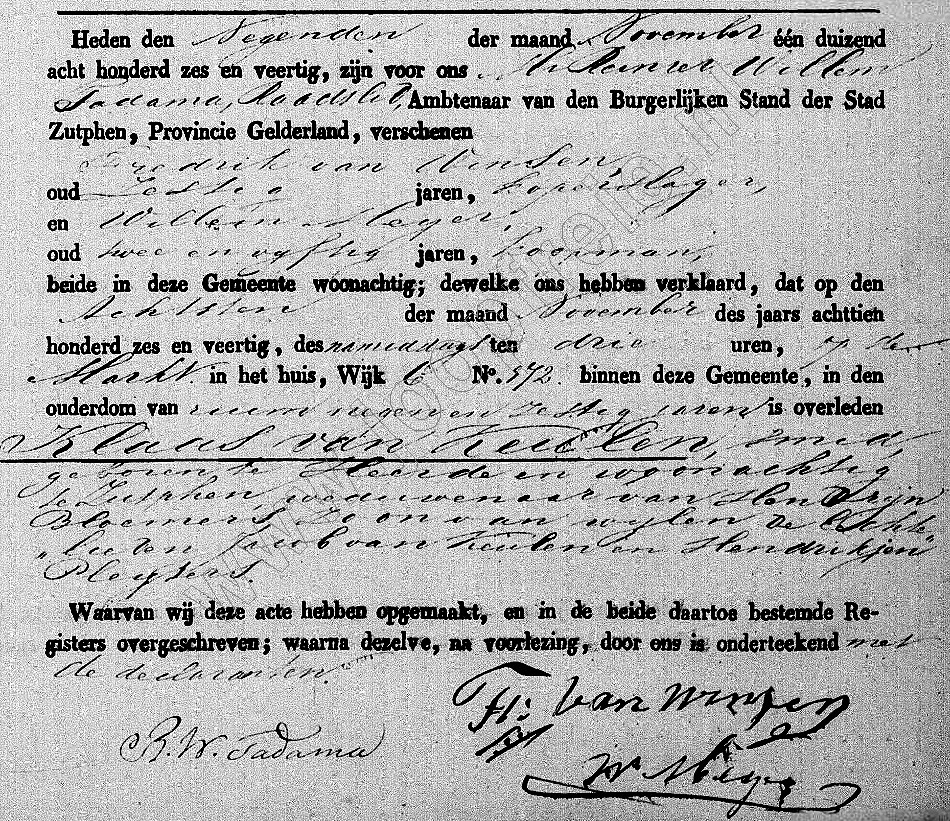 Heden den Negenden der maand November één duizend
acht honderd zes en veertig, zijn voor ons Mr Reinier Willem
Tadama, Raadslid, Ambtenaar van den Burgerlijken Stand der Stad
Zutphen, Provincie Gelderland, verschenen
Fredrik van Winsen,
oud Zestig jaren, koperslager,
en Willem Meyer,
oud twee en vyftig jaren, koopman,
beide in deze Gemeente woonachtig; dewelke ons hebben verklaard, dat op den
Achtsten der maand November des jaars achttien
honderd zes en veertig, des namiddags ten drie uren, op de
Markt in het huis, Wijk C No. 572 binnen deze Gemeente, in den
ouderdom van ruim negen en zestig jaren is overleden
Klaas van Keulen, smid,
geboren te Heerde en woonachtig
te Zutphen, weduwenaar van Hendrijn
Bloemers, zoon van wylen de Echte
"lieden Jacob van Keulen en Hendrikjen
Pleyters.
Waarvan wij deze acte hebben opgemaakt, en in de beide daartoe bestemde Re-
gisters overgeschreven; waarna dezelve, na voorlezing, door ons is onderteekend met
de declaranten.
Fk: van Winsen
R. W. Tadama
Wm Meyer